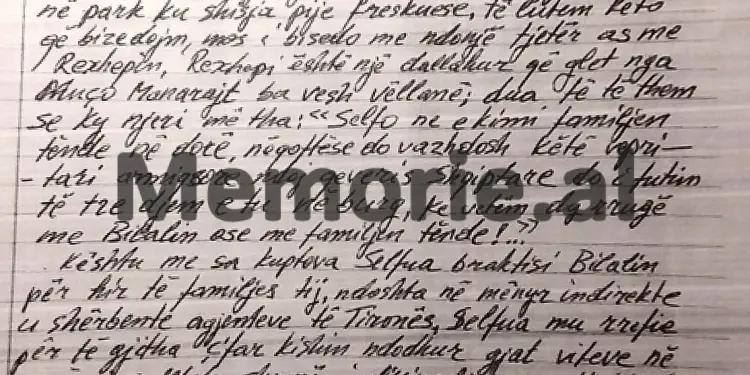 në park ku shisja pije freskuese, të lutem këto
që bizedojm, mos i bisedo me ndonjë tjetër as me
Rexhepin, Rexhepi është një dallahur që glet nga
Muço Manarajt ba vesh vëllanë; dua të të them
se ky njeri më tha: "Selfo ne e kimi familjen
tënde në dorë, nëqoftëse do vazhdosh këtë vepri-
-tari armiqsore ndaj qeveris Shqiptare do i futim
të tre djem e tu në burg, ke vetëm dy rrugë
me Bilalin ose me familjen tënde!..."
Kështu me sa kuptova Selfua braktisi Bilalin
për hir të familjes tij, ndoshta në mënyr indirekte
u shërbente agjenteve të Tironës, Selfua mu rrëfie
për të gjitha ç'far kishim ndodhur gjat viteve në
Memorie.al